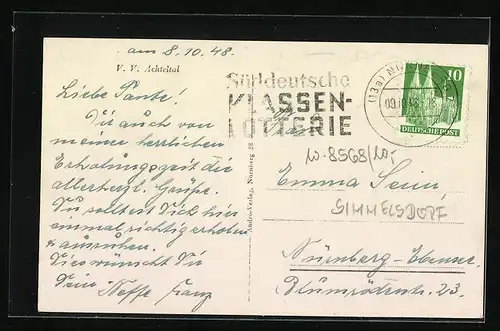 am 8.10.48.
V. V. Achteltal
Süddeutsche
KLASSEN-
LOTTERIE
(13a) NÜRNBERG
09.10.48
10
DEUTSCHE POST
Liebe Tante!
Dir auch von
meiner herrlichen
Erholungszeit die
allerherzl. Grüße.
Du solltest Dich hier
einmal richtig erholen
ausruhen.
Dies wünscht Dir
Dein Neffe Franz
Nürnberg 28
Frau
W-8568/10,-
Emma
SIMMELSDORF
Nürnberg-
23.